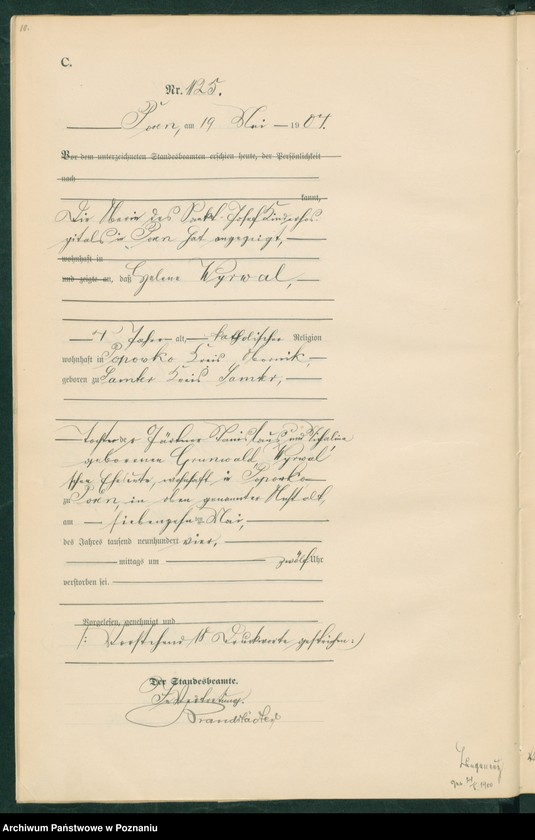 C.
Nr. 125.
Posen, am 19 Mai 1904.
Vor dem unterzeichneten Standesbeamten erschien heute, der Persönlichkeit
nach
kannt,
Die Oberin des Sankt Josef Kinderhos-
pitals in Posen hat angezeigt,
wohnhaft in
und zeigte an, daß Helene Wyrwal,
4 Jahre alt, katholischer Religion
wohnhaft in Popowko Kreis Obornik,
geboren zu Samter Kreis Samter,
Tochter der Gärtner Stanislaus und
geborenen Grunwald, Wyrwal'
schen Eheleute, wohnhaft in Popowko
zu Posen in oben genannter Anstalt,
am siebenzehnten Mai,
des Jahres tausend neunhundert vier,
mittags um zwölf Uhr
verstorben sei.
Vorgelesen, genehmigt und
/: Vorstehend 18 Druckworte gestrichen :/
Der Standesbeamte.
In Vertretung.